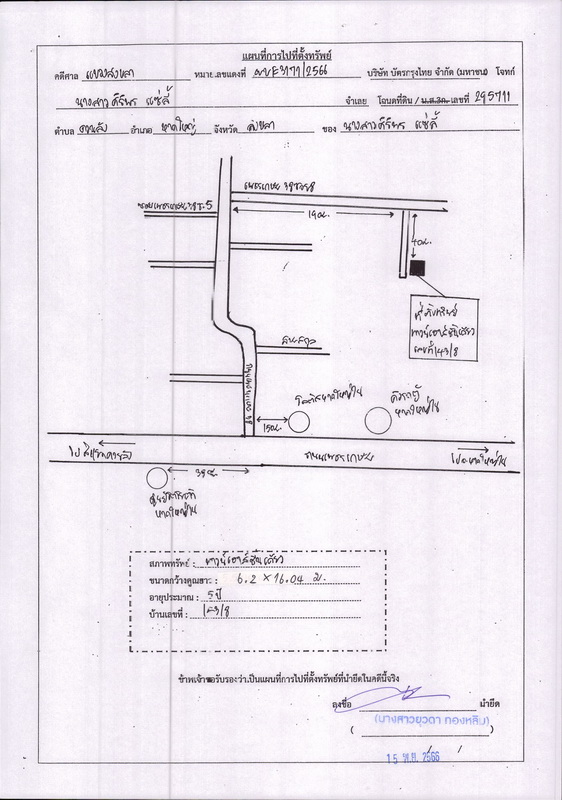 แผนที่การไปที่ตั้งทรัพย์
คดีศาล แขวงสงขลา หมายเลขแดงที่ ผบE3171/2566 บริษัท บัตรกรุงไทย จำกัด (มหาชน) โจทก์
นางสาวศิริพร แซ่ลี้ จำเลย โฉนดที่ดิน / น.ส.3ก. เลขที่ 295711
ตำบล ควนลัง อำเภอ หาดใหญ่ จังหวัด สงขลา ของ นางสาวศิริพร แซ่ลี้
เพชรเกษม 38ซอย8
ซอยเพชรเกษม38ซ.5
19ม.
40ม.
ที่ตั้งทรัพย์
ทาวน์เฮาส์ชั้นเดียว
เลขที่143/8
ถนนเพชรเกษม 38
150ม.
โลตัสหาดใหญ่ใน
หาดใหญ่ใน
ถนนเพชรเกษม
ไปหาดใหญ่ใน
หาดใหญ่ใน
สภาพทรัพย์ : ทาวน์เฮาส์ชั้นเดียว
ขนาดกว้างคูณยาว : 6.2 × 16.04 ม.
อายุประมาณ : 5 ปี
บ้านเลขที่ : 143/8
ข้าพเจ้าขอรับรองว่าเป็นแผนที่การไปที่ตั้งทรัพย์ที่นำยึดในคดีนี้จริง
ลงชื่อ นำยึด
(นางสาวยุวดา ทองหลิม)
( )
15 พ.ย. 2566